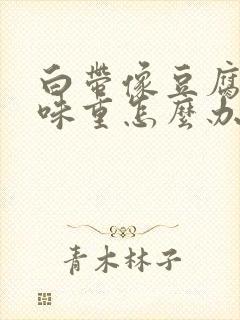 白带像豆腐
味重怎麽办
青木林子